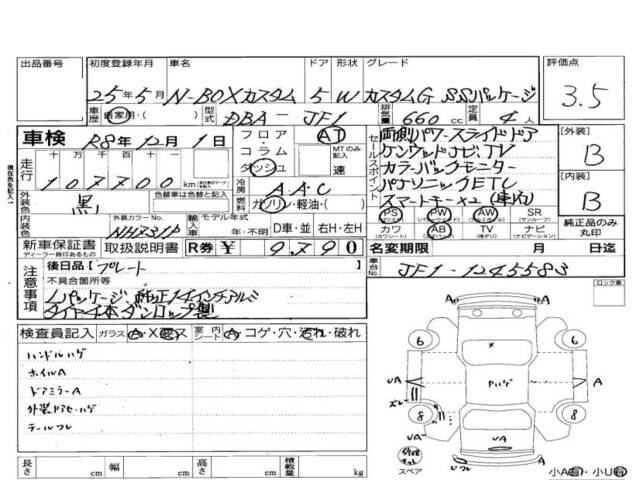 出品番号
初度登録年月 車名 ドア 形状 グレード
評価点
25年5月 N-BOXカスタム 5 W カスタムG SSパッケージ
3.5
車歴 自家用・( ) 型式 DBA-JF1 排気量 660 cc 定員 4人
車検 R8年12月1日
フロア
コラム
ダッシュ
AT
MTのみ記入
速
走行 十万千百十一
107700 km
セールスポイント
両側パワースライドドア
ケンウッドナビTV
カラーバックモニター
パナソニックETC
スマートキー×2 (車内)
[外装]
B
[内装]
B
外装色 黒 色替車は色替と記入
冷房 A.A.C
燃料 ガソリン・軽油・( )
内装色 外装カラーNo. NH731P
輸入車 モデル年式 年・不明 D車・並 右H・左H
PS PW AW SR
(パワステ) (サンルーフ)
カワ AB TV ナビ
(カワシート) (エアバッグ) (地デジ) (ナビゲーション)
純正品のみ丸印
新車保証書 取扱説明書 R券 ¥ 9,790
ディーラー捺印あるもの
名変期限 月 日迄
注意事項
後日品【プレート
不具合箇所等
車台No. JF1-1245583
ロック車
Nパッケージ 純正14インチアルミ
タイヤ4本ダンロップ製
検査員記入 ガラス 室内シート コゲ・穴・汚れ・破れ
ハンドルハゲ
ホイルA
ドアミラーA
テールワレ
6 6
UA A Pハゲ A
8 8
UA UA
スペア
小A有・小U有
長さ cm 幅 cm 高さ cm 積載量 kg